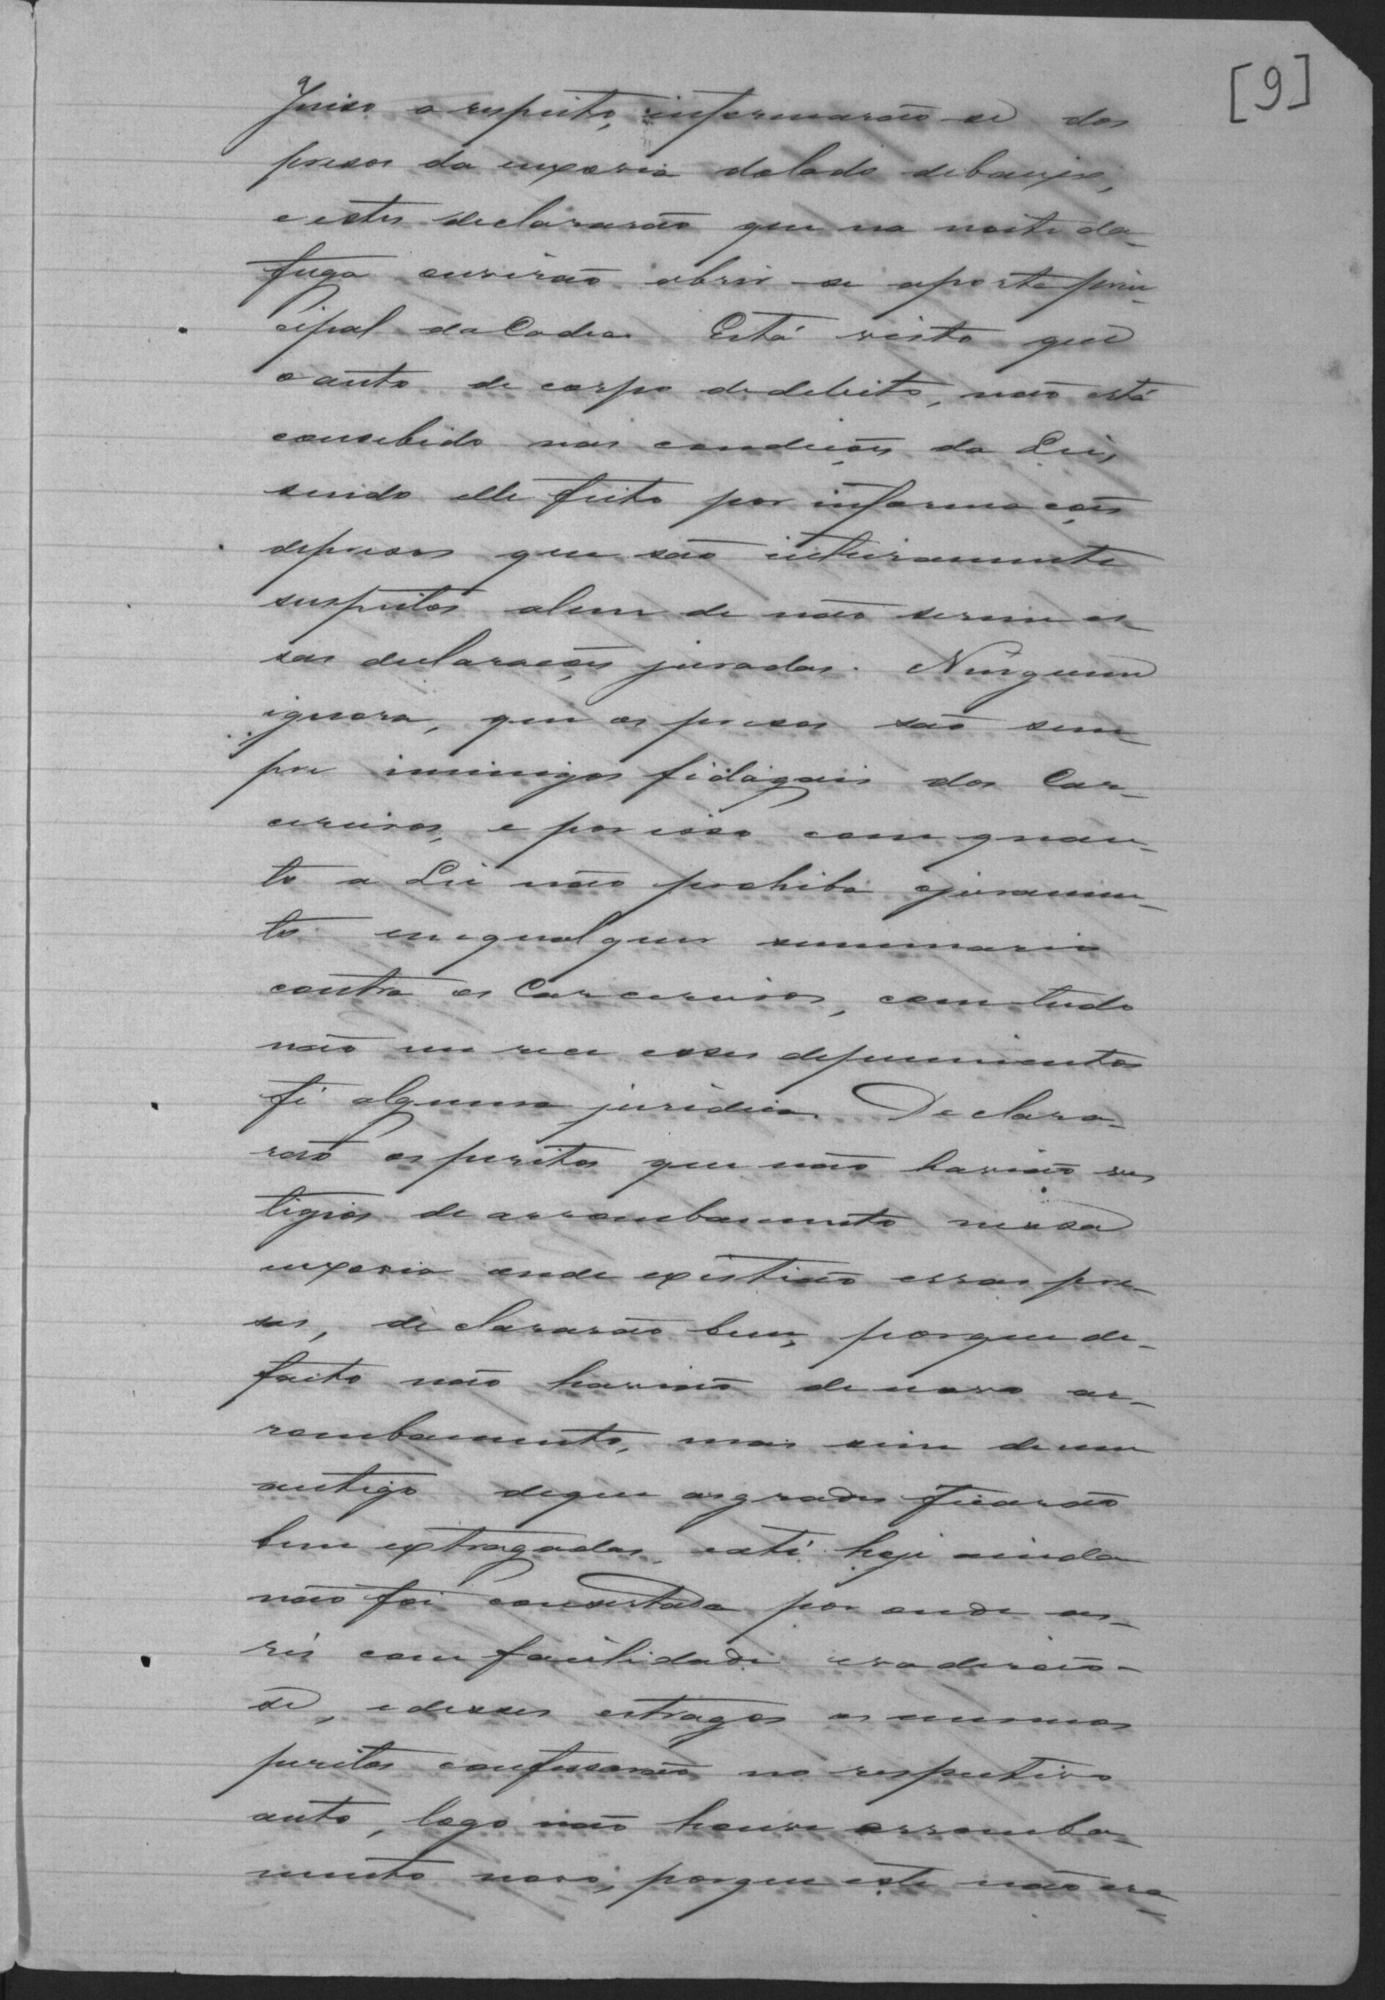 [9]
Juiso a respeito, informarão-se dos
presos da enxovia dolado debauxo,
e estes declararão que na noite da
fuga ouvirão abrir-se aporta prin-
cipal da Cadea. Está visto que
o auto de corpo dedelicto, não está
consebido nas condições da Lei,
sendo elle feito por informações
depresos que são inteiramente
suspeitos alem de não serem es-
sas declarações juradas. Ninguem
ignora, que os presos são sem-
pre inimigos fidagais dos Car-
cereiros, e por isso com quan-
to a Lei não prohiba ojuramen-
to em qualquer summario
contra os Carcereiros, com tudo
não merece esses depuimentos
fé alguma juridica. Declara-
rão os peritos que não havião ves
tigios de arrombamento nessa
enxovia onde existião essas pre-
sas, declararão bem, porque de-
facto não havião de novo ar-
rombamento, mas sim de um
antigo deque as grades ficarão
bem extragadas, eaté hoje ainda
não foi consertada por onde as
rés com facilidade evadirão-
se, e desses estragos os mesmos
peritos confessarão no respectivo
auto, logo não houve arromba-
mento novo, porque este não era